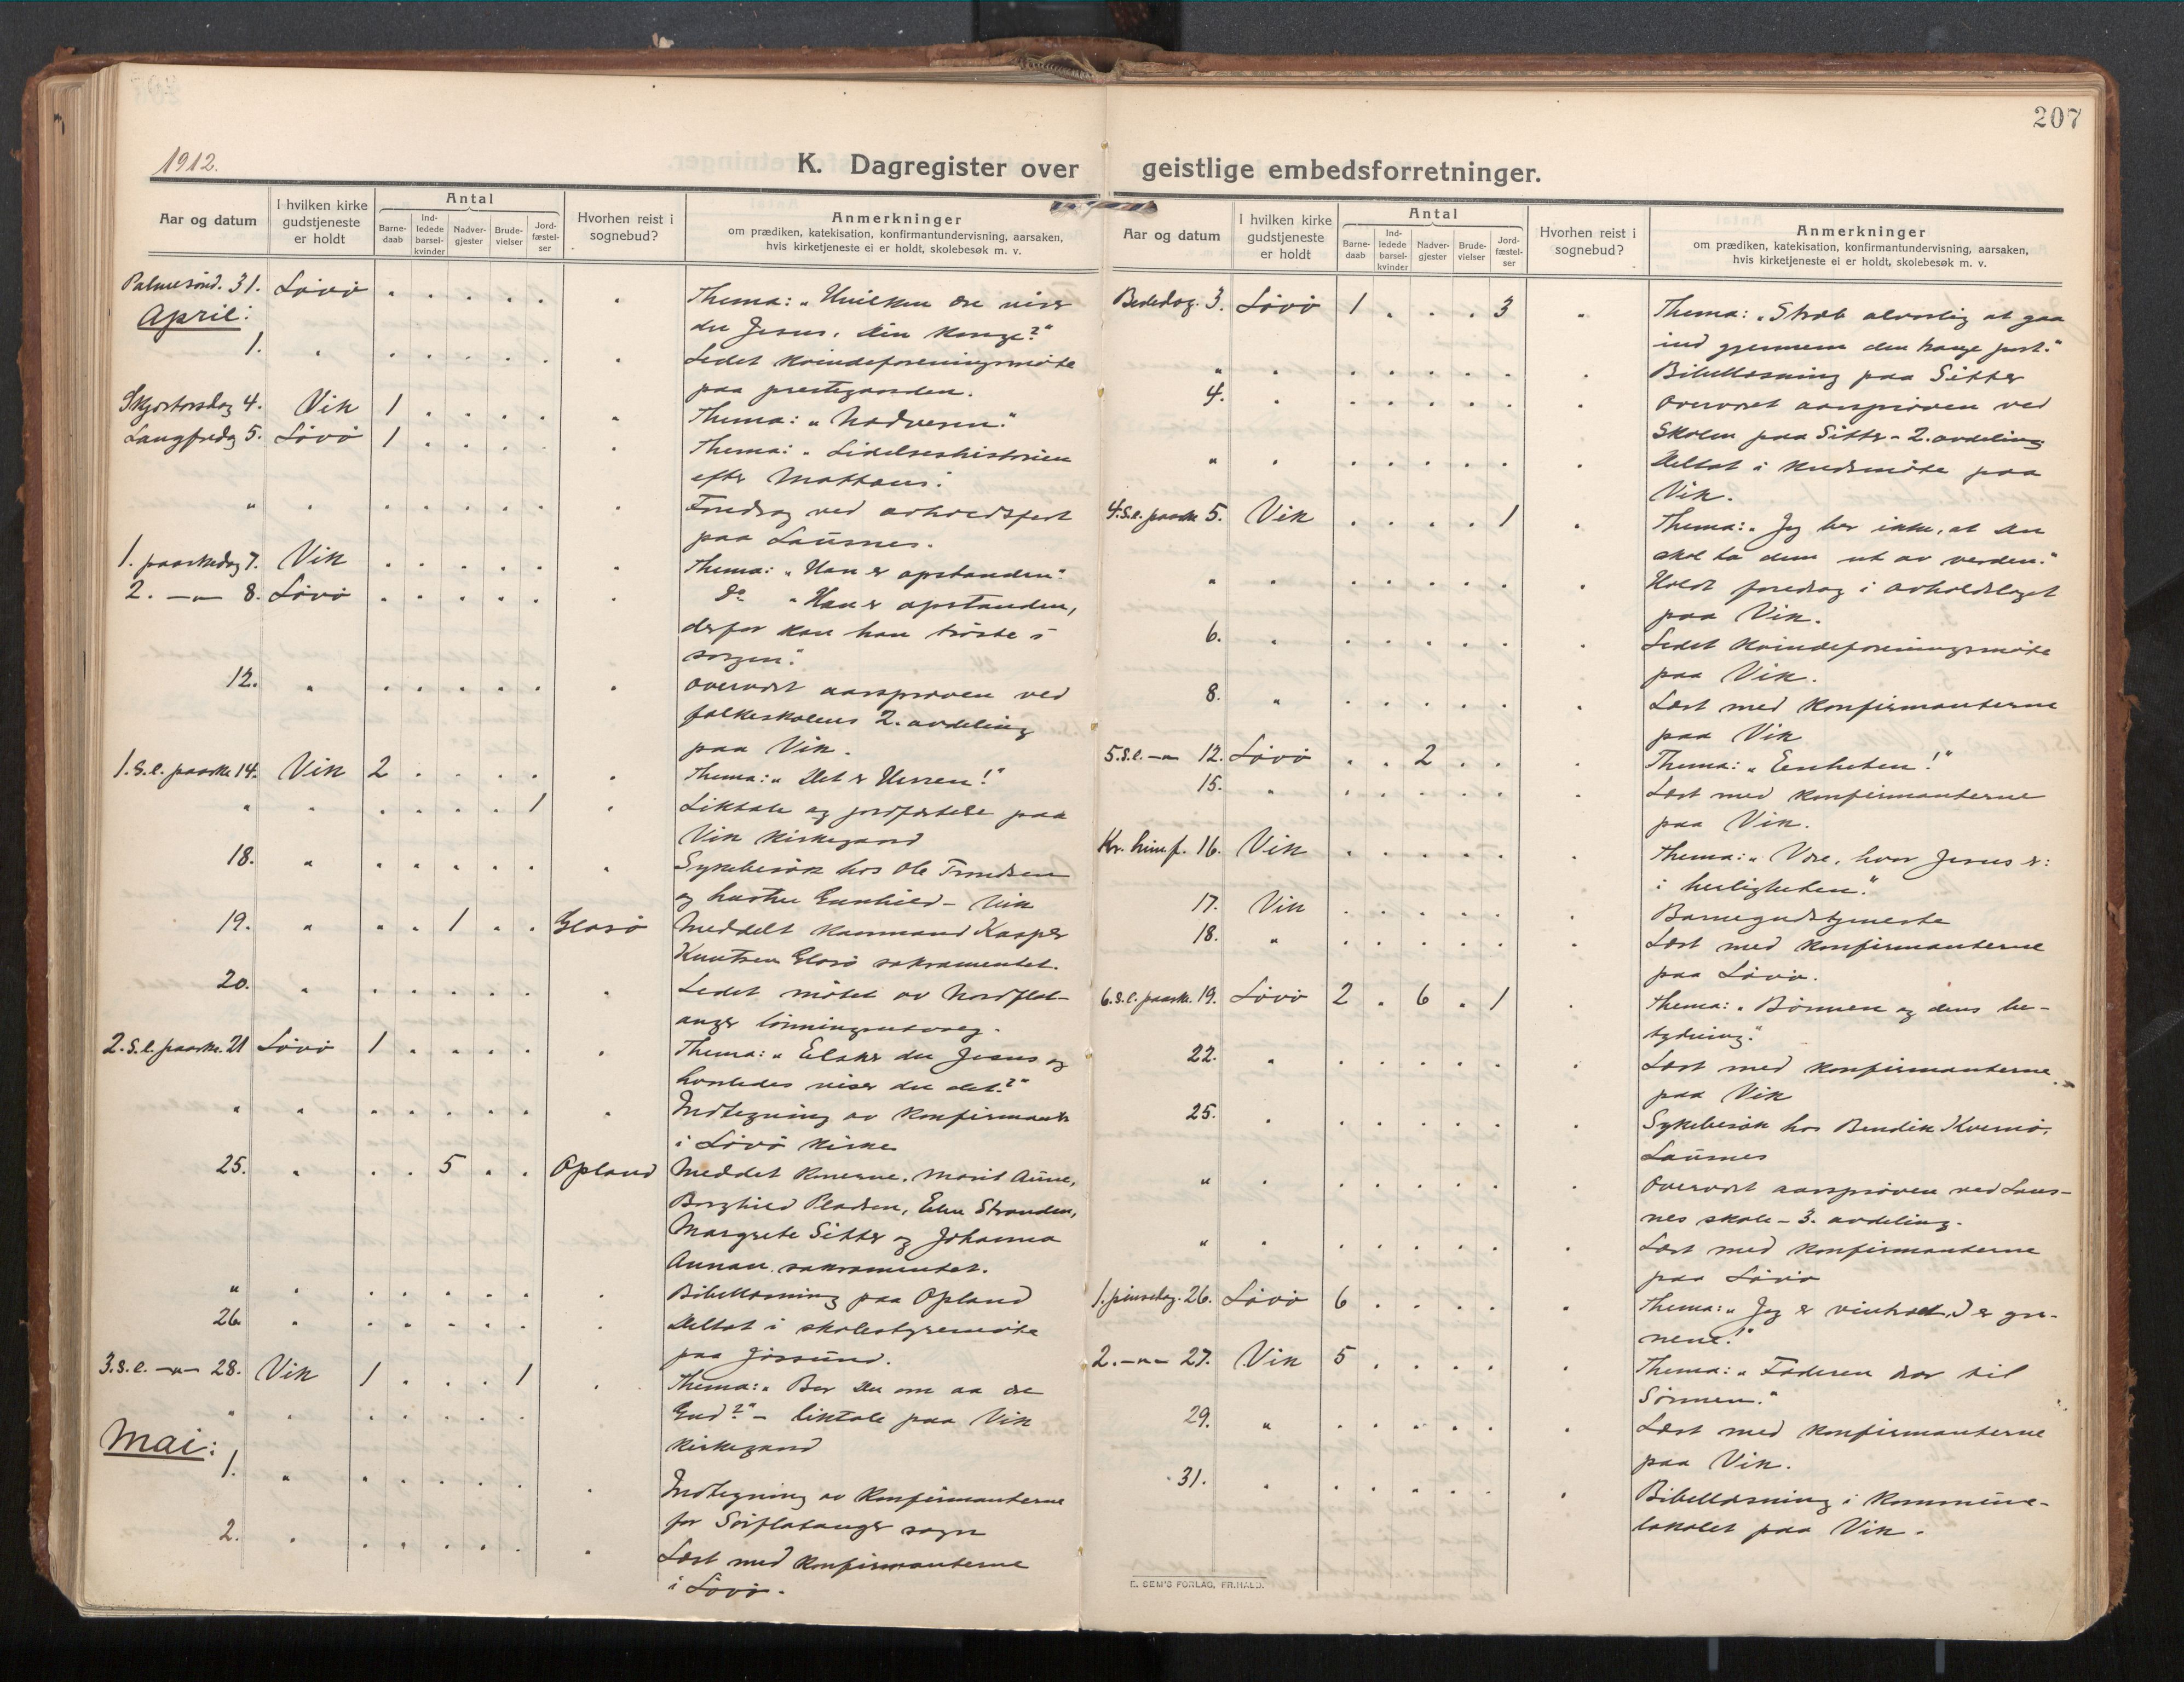 207
1912.
K. Dagregister over geistlige embedsforretninger.
Aar og datum
I hvilken kirke gudstjeneste er holdt
Antal
Barne-daab
Ind-ledede barsel-kvinder
Nadver-gjester
Brude-vielser
Jord-fæstel-ser
Hvorhen reist i sognebud?
Anmerkninger
om prædiken, katekisation, konfirmantundervisning, aarsaken,
hvis kirketjeneste ei er holdt, skolebesøk m. v.
Palmesønd. 31. Løvø . . . . . . Thema: "Hvilken ære viser
April: du Jesus, din konge?"
1. " . . . . . . Ledet kvindeforeningsmøte
paa prestegaarden.
Skjærtorsdag 4. Vik 1 . . . . . Thema: "Nadveren."
Langfredag 5. Løvø 1 . . . . Thema: "Lidelseshistorien
efter Mattæus.
" . . . . . . . Foredrag ved avholdsfest
paa Lausnes.
1. paaskedag 7. Vik . . . . . . Thema: "Han er opstanden"
2. -"- 8. Løvø . . . . . . Do "Han er opstanden,
derfor kan han trøste i
sorgen."
12. " . . . . . . Overværet aarsprøven ved
folkeskolens 2. avdeling
paa Vik.
1. S. e. paaske 14. Vik 2 . . . . . Thema: "Det er Herren!"
" " . . . . 1 . Liktale og jordfæstelse paa
Vik kirkegaard
18. " . . . . . . Sykebesøk hos Ole Trondsen
og hustru Gunhild - Vik
19. " . . 1 . . Glasø Meddelt kaarmand Kasper
Knutsen Glasø sakramentet.
20. " . . . . . . Ledet møtet av Nordflat-
anger lønningsutvalg.
2. S. e. paaske. 21 Løvø 1 . . . . . Thema: "Elsker du Jesus og
hvorledes viser du det?"
" " . . . . . . Indtegning av konfirmanter
i Løvø kirke
25. " . . 5 . . Opland Meddelt konerne. Marit Aune,
Borghild Pladsen, Elen Stranden,
Margrete Sitter og Johanna
Aunan sakramentet.
" . . . . . . . Bibellæsning paa Opland
26. " . . . . . . Deltat i skolestyremøte
paa Jøssund.
3. S. e. -"- 28. Vik 1 . . . 1 . Thema: "Ber du om aa ære
" " . . . . . Gud?" - liktale paa Vik
kirkegaard
Mai:
1. " . . . . . . Indtegning av konfirmanterne
for Sørflatanger sogn
2. . . . . . . . Læst med konfirmanterne
i Løvø.
Aar og datum
I hvilken kirke gudstjeneste er holdt
Antal
Barne-daab
Ind-ledede barsel-kvinder
Nadver-gjester
Brude-vielser
Jord-fæstel-ser
Hvorhen reist i sognebud?
Anmerkninger
om prædiken, katekisation, konfirmantundervisning, aarsaken,
hvis kirketjeneste ei er holdt, skolebesøk m. v.
Bededag. 3. Løvø 1 . . . 3 " Thema: "Stræb alvorlig at gaa
ind gjennem den trange port."
" . . . . . . . Bibellæsning paa Sitter
4. . . . . . . . Overværet aarsprøven ved
Skolen paa Sitter - 2. avdeling
" . . . . . . . Deltat i kredsmøte paa
Vik.
4. S. e. paaske 5. Vik . . . . 1 . Thema: "Jeg ber ikke, at du
skal ta dem ut av verden."
" . . . . . . . Holdt foredrag i avholdslaget
paa Vik.
6. " . . . . . . Ledet kvindeforeningsmøte
paa Vik.
8. " . . . . . . Læst med konfirmanterne
paa Vik
5. S. e. -"- 12. Løvø . . 2 . . . Thema: "Enheten!"
15. " . . . . . . Læst med konfirmanterne
paa Vik.
Kr. himf. 16. Vik . . . . . . Thema: "Være, hvor Jesus er:
i herligheten."
17. Vik . . . . . . Barnegudstjeneste
18. " . . . . . . Læst med konfirmanterne
paa Løvø.
6. S. e. paaske. 19. Løvø 2 . 6 . 1 . Thema: "Bønnen og dens be-
tydning."
22. " . . . . . . Læst med konfirmanterne
paa Vik
25. . . . . . . . Sykebesøk hos Bendik Kvernø,
Lausnes
" . . . . . . . Overværet aarsprøven ved Laus-
nes skole - 3. avdeling.
" . . . . . . . Læst med konfirmanterne
paa Løvø
1. pinsedag. 26. Løvø 6 . . . . . Thema: "Jeg er vintræet, I er gre-
nene!"
2. -"- 27. Vik 5 . . . . . Thema: "Faderen drar til
Sønnen."
29. " . . . . . . Læst med konfirmanterne
paa Vik.
31. . . . . . . . Bibellæsning i kommune-
lokalet paa Vik.
E. SEM'S FORLAG, FR.HALD.